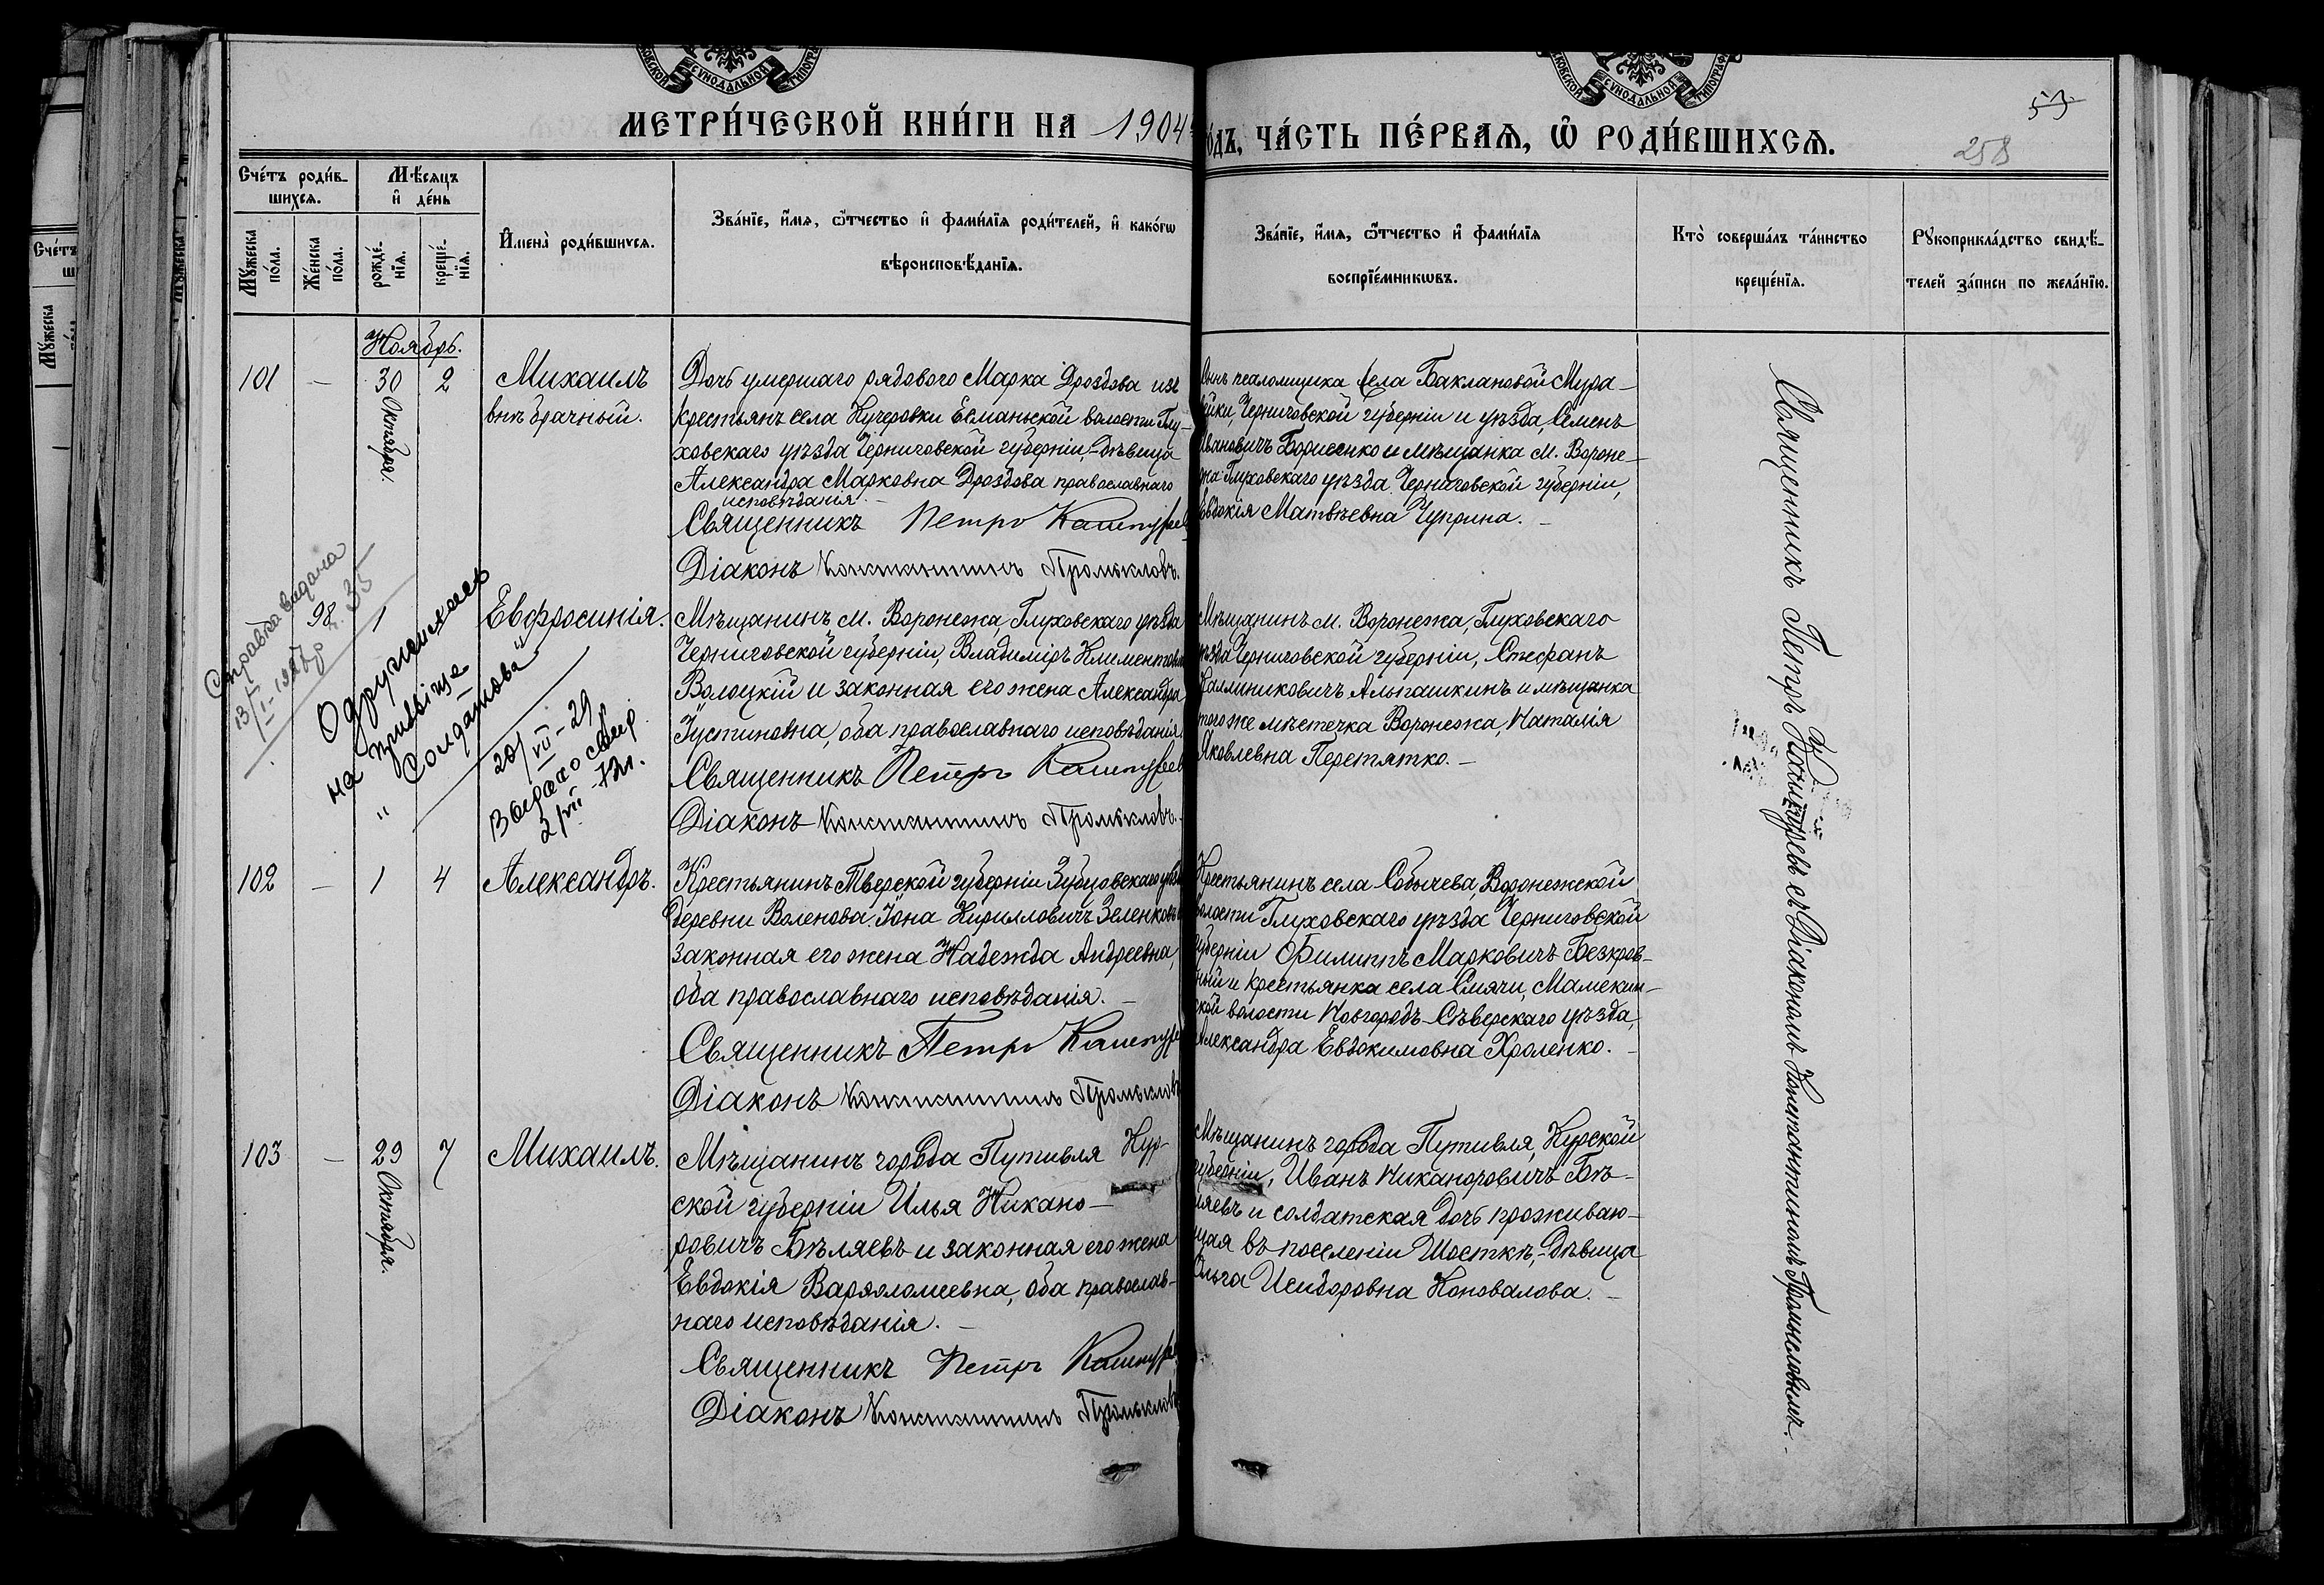 МЕТРИ́ЧЕСКОЙ КНИ́ГИ НА 1904
ЧА́СТЬ ПЕ́РВАЯ, Ѡ РОДИ́ВШИХСЯ.
53
258
Сче́тъ роди́в-
шихся.
Мѣсяцъ
и де́нь
Му́жеска
по́ла.
Же́нска
по́ла.
рожде́-
нїя.
креще́-
нїя.
Имена̀ роди́вшихся.
Зва́нїе, и́мя, ѻ́тчество и фами́лїя роди́телей, и како́гѡ
вѣроисповѣ́данїя.
Зва́нїе, и́мя, ѻ́тчество и фами́лїя
воспрїе́мникѡвъ.
Кто̀ соверша́лъ та́инство
креще́нїя.
Рꙋкоприкла́дство свидѣ́-
телей за́писи по жела́нїю.
Ноябрь.
101 — 30 Октября. 2
Михаилъ
внѣбрачный.
Дочь умершаго рядового Марка Дроздова изъ
крестьянъ села Кучеровки Есманьской волости Глу-
ховскаго уѣзда Черниговской губерніи, дѣвица
Александра Марковна Дроздова православнаго
исповѣданія.
Священникъ Петръ
Діаконъ Константинъ Промысловъ.
Сынъ псаломщика села Баклановой Мура-
вейки, Черниговской губерніи и уѣзда, Семенъ
Ивановичъ Борисенко и мѣщанка м. Вороне-
жа Глуховскаго уѣзда Черниговской губерніи,
Евдокія Матвѣевна Чуприна. —
Справка видана
98 1
Евфросинія.
Мѣщанинъ м. Воронежа, Глуховскаго уѣзда
Черниговской губерніи, Владиміръ Климентов
Волоцкій и законная его жена Александра
Іустиновна, оба православнаго исповѣданія.
Священникъ Петръ
Діаконъ Константинъ Промысловъ.
Мѣщанинъ м. Воронежа, Глуховскаго
уѣзда Черниговской губерніи, Стефанъ
Каллиниковичъ Алыпашкинъ и мѣщанка
того же мѣстечка Воронежа, Наталія
Яковлевна Перетятко. —
на прізвіще
20/VII-29
102 — 1 4
Александръ.
Крестьянинъ Тверской губерніи Зубцовскаго уѣзд
деревни Воленова Іона Кирилловичъ Зеленковъ и
законная его жена Надежда Андреевна,
оба православнаго исповѣданія. —
Священникъ Петръ
Діаконъ Константинъ Промысловъ
Крестьянинъ села Собычева, Воронежской
волости Глуховскаго уѣзда Черниговской
губерніи Филиппъ Марковичъ Безкров-
ный и крестьянка села Смячи, Мамекин-
ской волости Новгородъ-Сѣверскаго уѣзда,
Александра Евдокимовна Хроленко. —
103 — 29 Октября. 7
Михаилъ.
Мѣщанинъ города Путивля Кур-
ской губерніи Илья Никано-
ровичъ Бѣляевъ и законная его жена
Евдокія Варѳоломеевна, оба православ-
наго исповѣданія. —
Священникъ Петръ
Діаконъ Константинъ Промысловъ
Мѣщанинъ города Путивля, Курской
губерніи, Иванъ Никаноровичъ Бѣ-
ляевъ и солдатская дочь проживаю-
щая въ поселеніи Шосткѣ, дѣвица
Ольга Исидоровна Коновалова. —
Священникъ Петръ съ Діакономъ Константиномъ Промысловымъ. —